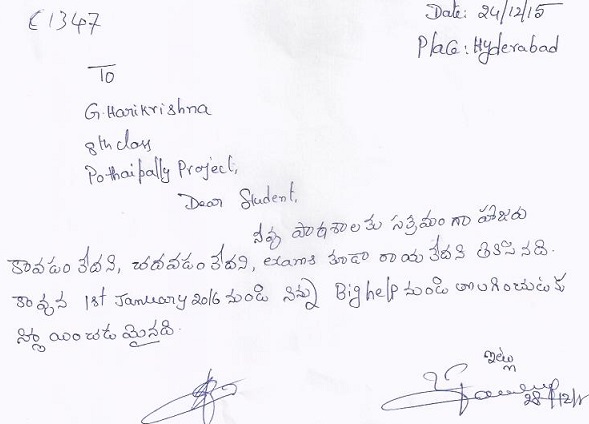 E1347
Date: 24/12/15
Place: Hyderabad
To
G. Harikrishna
8th class
Pothaipally Project,
Dear Student,
నీవు పాఠశాలకు సక్రమంగా హాజరు
కావడం లేదని, చదవడం లేదని, exams కూడా రాయ లేదని తెలిసినది.
కావున 1st January 2016 నుండి నిన్ను Big help నుండి తొలగించుటకు
నిర్ణయించడమైనది.
ఇట్లు
28/12/1